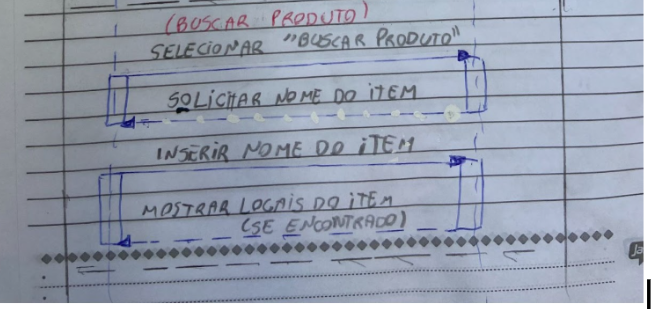 (BUSCAR PRODUTO)
SELECIONAR "BUSCAR PRODUTO"
SOLICITAR NOME DO ITEM
INSERIR NOME DO ITEM
MOSTRAR LOCAIS DO ITEM
(SE ENCONTRADO)